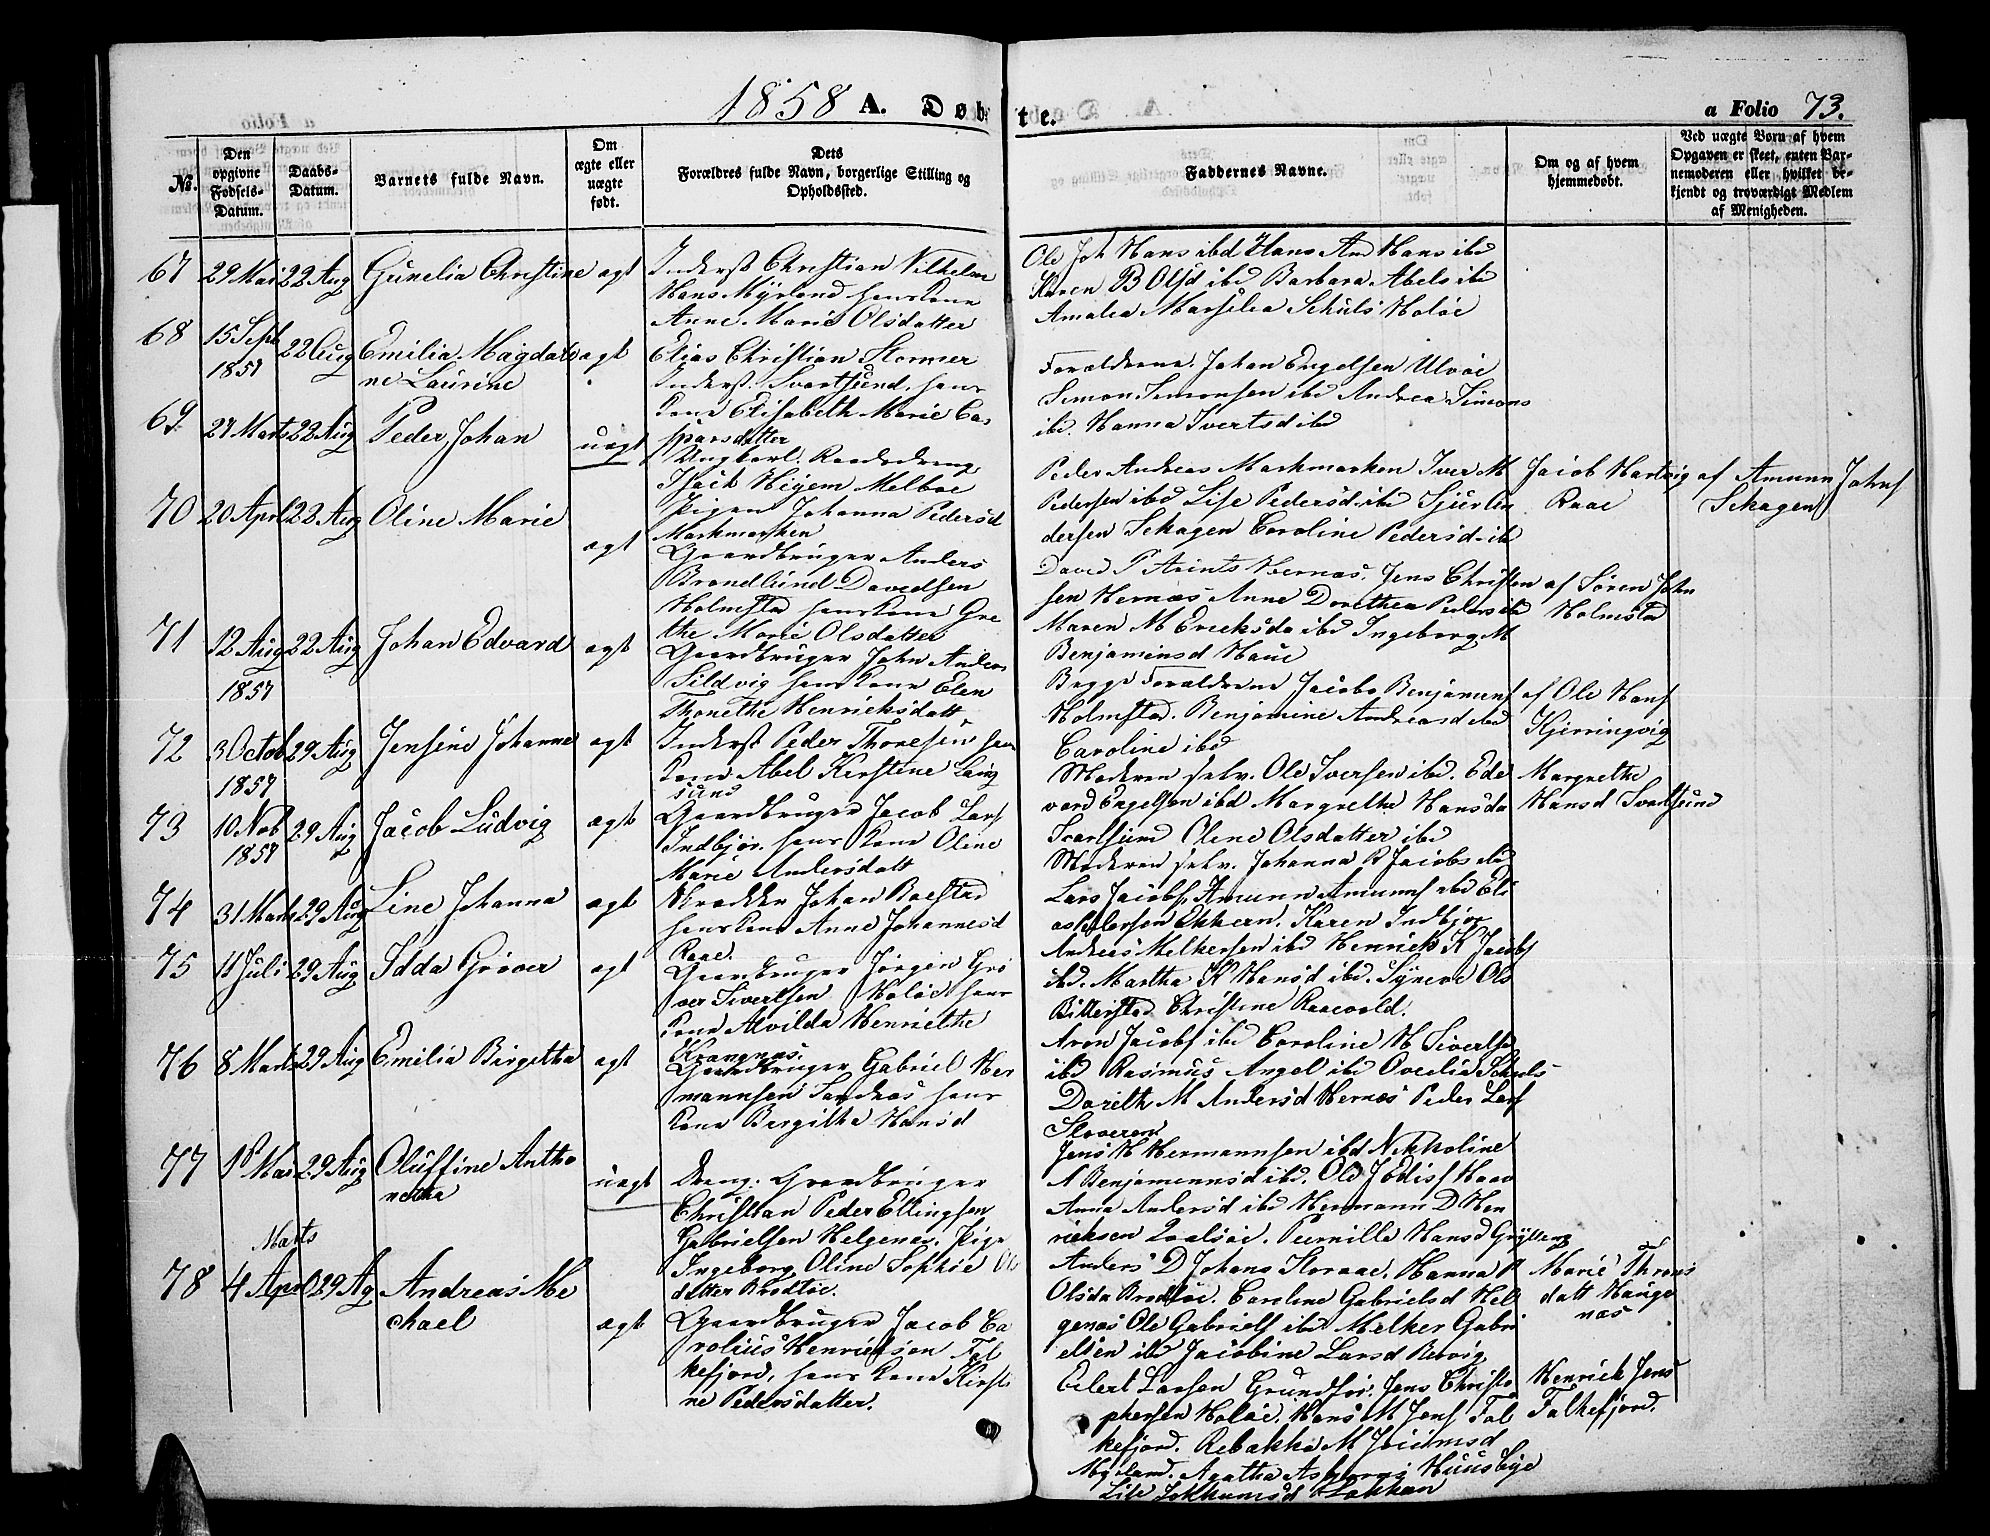 1858 A. Døbte. a Folio 73.
No.
Den opgivne Fødsels-Datum.
Daabs-Datum.
Barnets fulde Navn.
Om ægte eller uægte født.
Dets Forældres fulde Navn, borgerlige Stilling og Opholdssted.
Faddernes Navne.
Om og af hvem hjemmedøbt.
Ved uægte Børn af hvem Opgaven er skeet, enten Barnemoderen eller hvilket bekjendt og troværdigt Medlem af Menigheden.
67 29 Mai 22 Aug Gunelia Christine agt
Inderst Christian Vilhelm
Hans Myrland hans Kone
Anne Marie Olsdatter
Ole Joh Hans ibd Hans And Hans ibd
Karen B Olsd ibd Barbara Abels ibd
Amalia Marselia Schuls Holøe
68 15 Sept 1857 22 Aug Emilia Magdale
ne Laurine agt
Elias Christian Stormer
Inderst Svartsund, hans
Kone Elisabeth Marie Ca
sparsdatter
Forældrene. Johan Engelsen Ulvøe
Simon Simonsen ibd Andrea Simons
ibd. Hanna Ivertsd ibd
69. 27 Marts 22 Aug Peder Johan uægt
Ungkarl. Raadsdreng
Isack Heyem Melboe
Pigen Johanna Pedersd
Markmarken
Peder Andreas Markmarken Iver M
Pedersen ibd Lise Pedersd ibd Sjur
dersen Skagen Caroline Pedersd ibd
Jacob Hartvig
Raae
af Amunn Johns
Skagen
70 20 April 22 Aug Oline Marie agt
Gaardbruger Anders
Brondlund Davidsen
Holmstad hans Kone Gre
the Marie Olsdatter
David P Arints Hernæs. Jens Christen
sen Hernæs Anne Dorethea Peders ibd
Maren M Ericksda ibd Ingeborg M
Benjaminsd Haue
af Søren John
Holmstad
71 12 Aug 1857 22 Aug Johan Edvard agt
Gaardbruger John Anders
Sildvig hans Kone Elen
Thonethe Henricksdatt
Begge Forældrene Jacob Benjamins
Holmstad. Benjamine Andreasd ibd
Caroline ibd
af Ole Hans
Kjerringvig
72 3 Octob 1857 29 Aug Jensine Johanne agt
Inderst Peder Thoresen hans
Kone Abel Kirstine Lang
sund
Moderen selv. Ole Iversen ibd. Ede
vard Engelsen ibd Margrethe Hansda
Svartsund Olene Olsdatter ibd
Margrethe
Hansd Svartsund
73 10 Nob 1857 29 Aug Jacob Ludvig agt
Gaardbruger Jacob Lars
Indbjor. hans Kone Oline
Marie Andersdatt
Moderen selv. Johanna R Jacobs ibd
Lars Jacobs. Amunn Amunns ibd Eli
as Pedersen Ekkern. Karen Indbjor
74 31 Marts 29 Aug Line Johanna agt
Skrædder Johan Roestad
hans Kone Anne Johannesd
Raae.
Andreas Melkersen ibd Henrick K Jacobs
ibd. Martha K Hansd ibd. Syneve Ols
Bitterstad Christine Raaevold.
75 11 Juli 29 Aug Idda Grøver agt
Gaardbruger Jørgen Grø
ver Sivertsen Holøe hans
Kone Alvilda Henriethe
Krangnæs.
Aron Jacobs ibd Caroline H Sivertsen
ibd Rasmus Angel ibd Ovedia Schuls
76 8 Marts 29 Aug Emilia Birgetha agt
Gaardbruger Gabriel Her
mannsen Sandnæs hans
Kone Birgitha Hansd
Doreth M Andersd Hernæs Peder Lars
Sloveren
Jens H Hermannsen ibd Nikkoline
N Benjaminnsd ibd.
77 18 Mai 29 Aug Oluffine Antho
netha uægt
Dreng. Gaardbruger
Christian Peder Ellingsen
Gabrielsen Helgenæs. Pige
Ingeborg Oline Sophie Ols
datter Brodtøe.
Ole J Edis Haae
Anna Andersd ibd Hermann D Hen
ricksen Pernille Hansd Grytting
Anders D Johans Storaae. Hanna P
Olsda Brodtøe. Caroline Gabrielsd Hel
genæs Ole Gabriels ibd Melker Gabri
elsen ibd Jacobine Larsd Bervig
Marie Throns
datt Hauge
næs
78 4 Marts April 29 Ag Andreas Mi
chael agt
Gaardbruger Jacob Ca
rolius Henricksen Fal
kefjord, hans Kone Kirsti
ne Pedersdatter.
Eilert Larsen Grundfør. Jens Christo
phersen Holøe. Hans M Jens Fal
kefjord. Rebakka M Joeimsd
Myrland. Agatha Huusbye
Lise Jokkumsd Lakkan
Henrick Jens
Falkefjord.